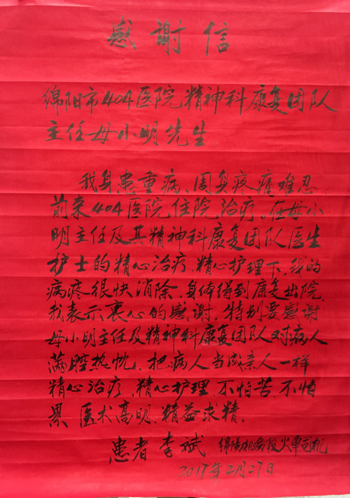 感謝信
绵阳市404医院精神科康复团队
主任母小明先生
我身患重病,周身疫痛难忍
前来404医院住院治疗,在母小
明主任及其精神科康复团队医生
护士的精心治疗,精心护理下,我的
病疼很快消除,身体得到康复出院,
我表示衷心的感谢,特别要感谢
母小明主任及精神科康复团队对病人
满腔热忱,把病人当成亲人一样
精心治疗,精心护理不怕苦不怕
累,医术高明,精益求精.
患者 李斌 绵阳机务段火车司机
2017年2月27日